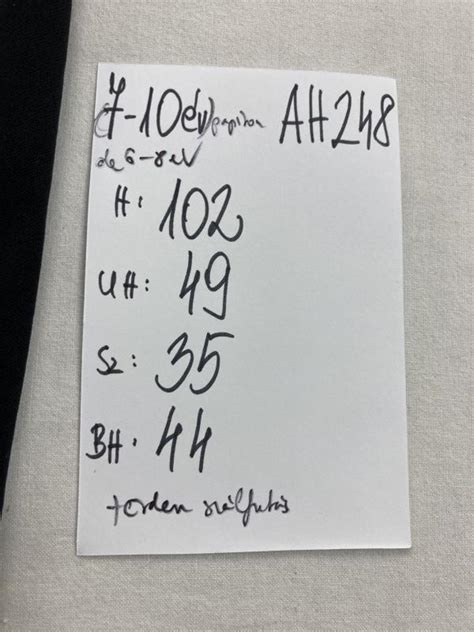 (7-10év) papiron AH248
de 6-8év
H: 102
UH: 49
Sz: 35
BH: 44
térden szálfutás